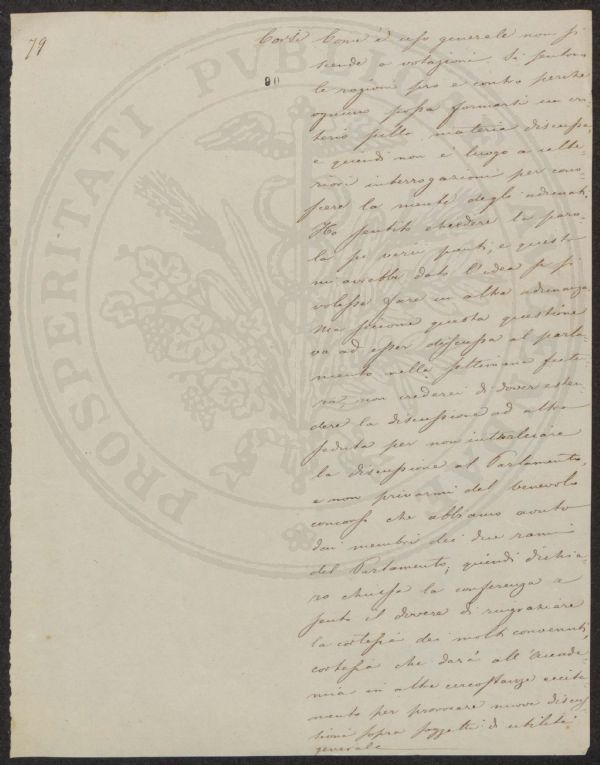 79
Corti Come è uso generale non si
scende a votazioni. Si sentono
90
le ragioni pro e contro perchè
ognuno possa formarsi un cri-
terio sulla materia discussa,
e quindi non è luogo a ulte-
riori interrogazioni per cono-
scere la mente degli adunati.
Ho sentito chiedere la paro-
la su varii punti, e questo
mi avrebbe dato l'idea se si
volesse fare un altra adunanza.
Ma siccome questa questione
va ad esser discussa al parla-
mento nella settimana futu-
ra, non crederei di dover esten-
dere la discussione ad altra
seduta per non intralciare
la discussione al Parlamento,
e non privarmi del benevolo
concorso che abbiamo avuto
dai membri dei due rami
del Parlamento; quindi dichia-
ro chiusa la conferenza e
sento il dovere di ringraziare
la cortesia dei molti convenuti,
cortesia che darà all'Accade-
mia in altre circostanze eccita-
mento per provocare nuove discus-
sioni sopra soggetti di utilità
generale
PROSPERITATI PVBLICAE